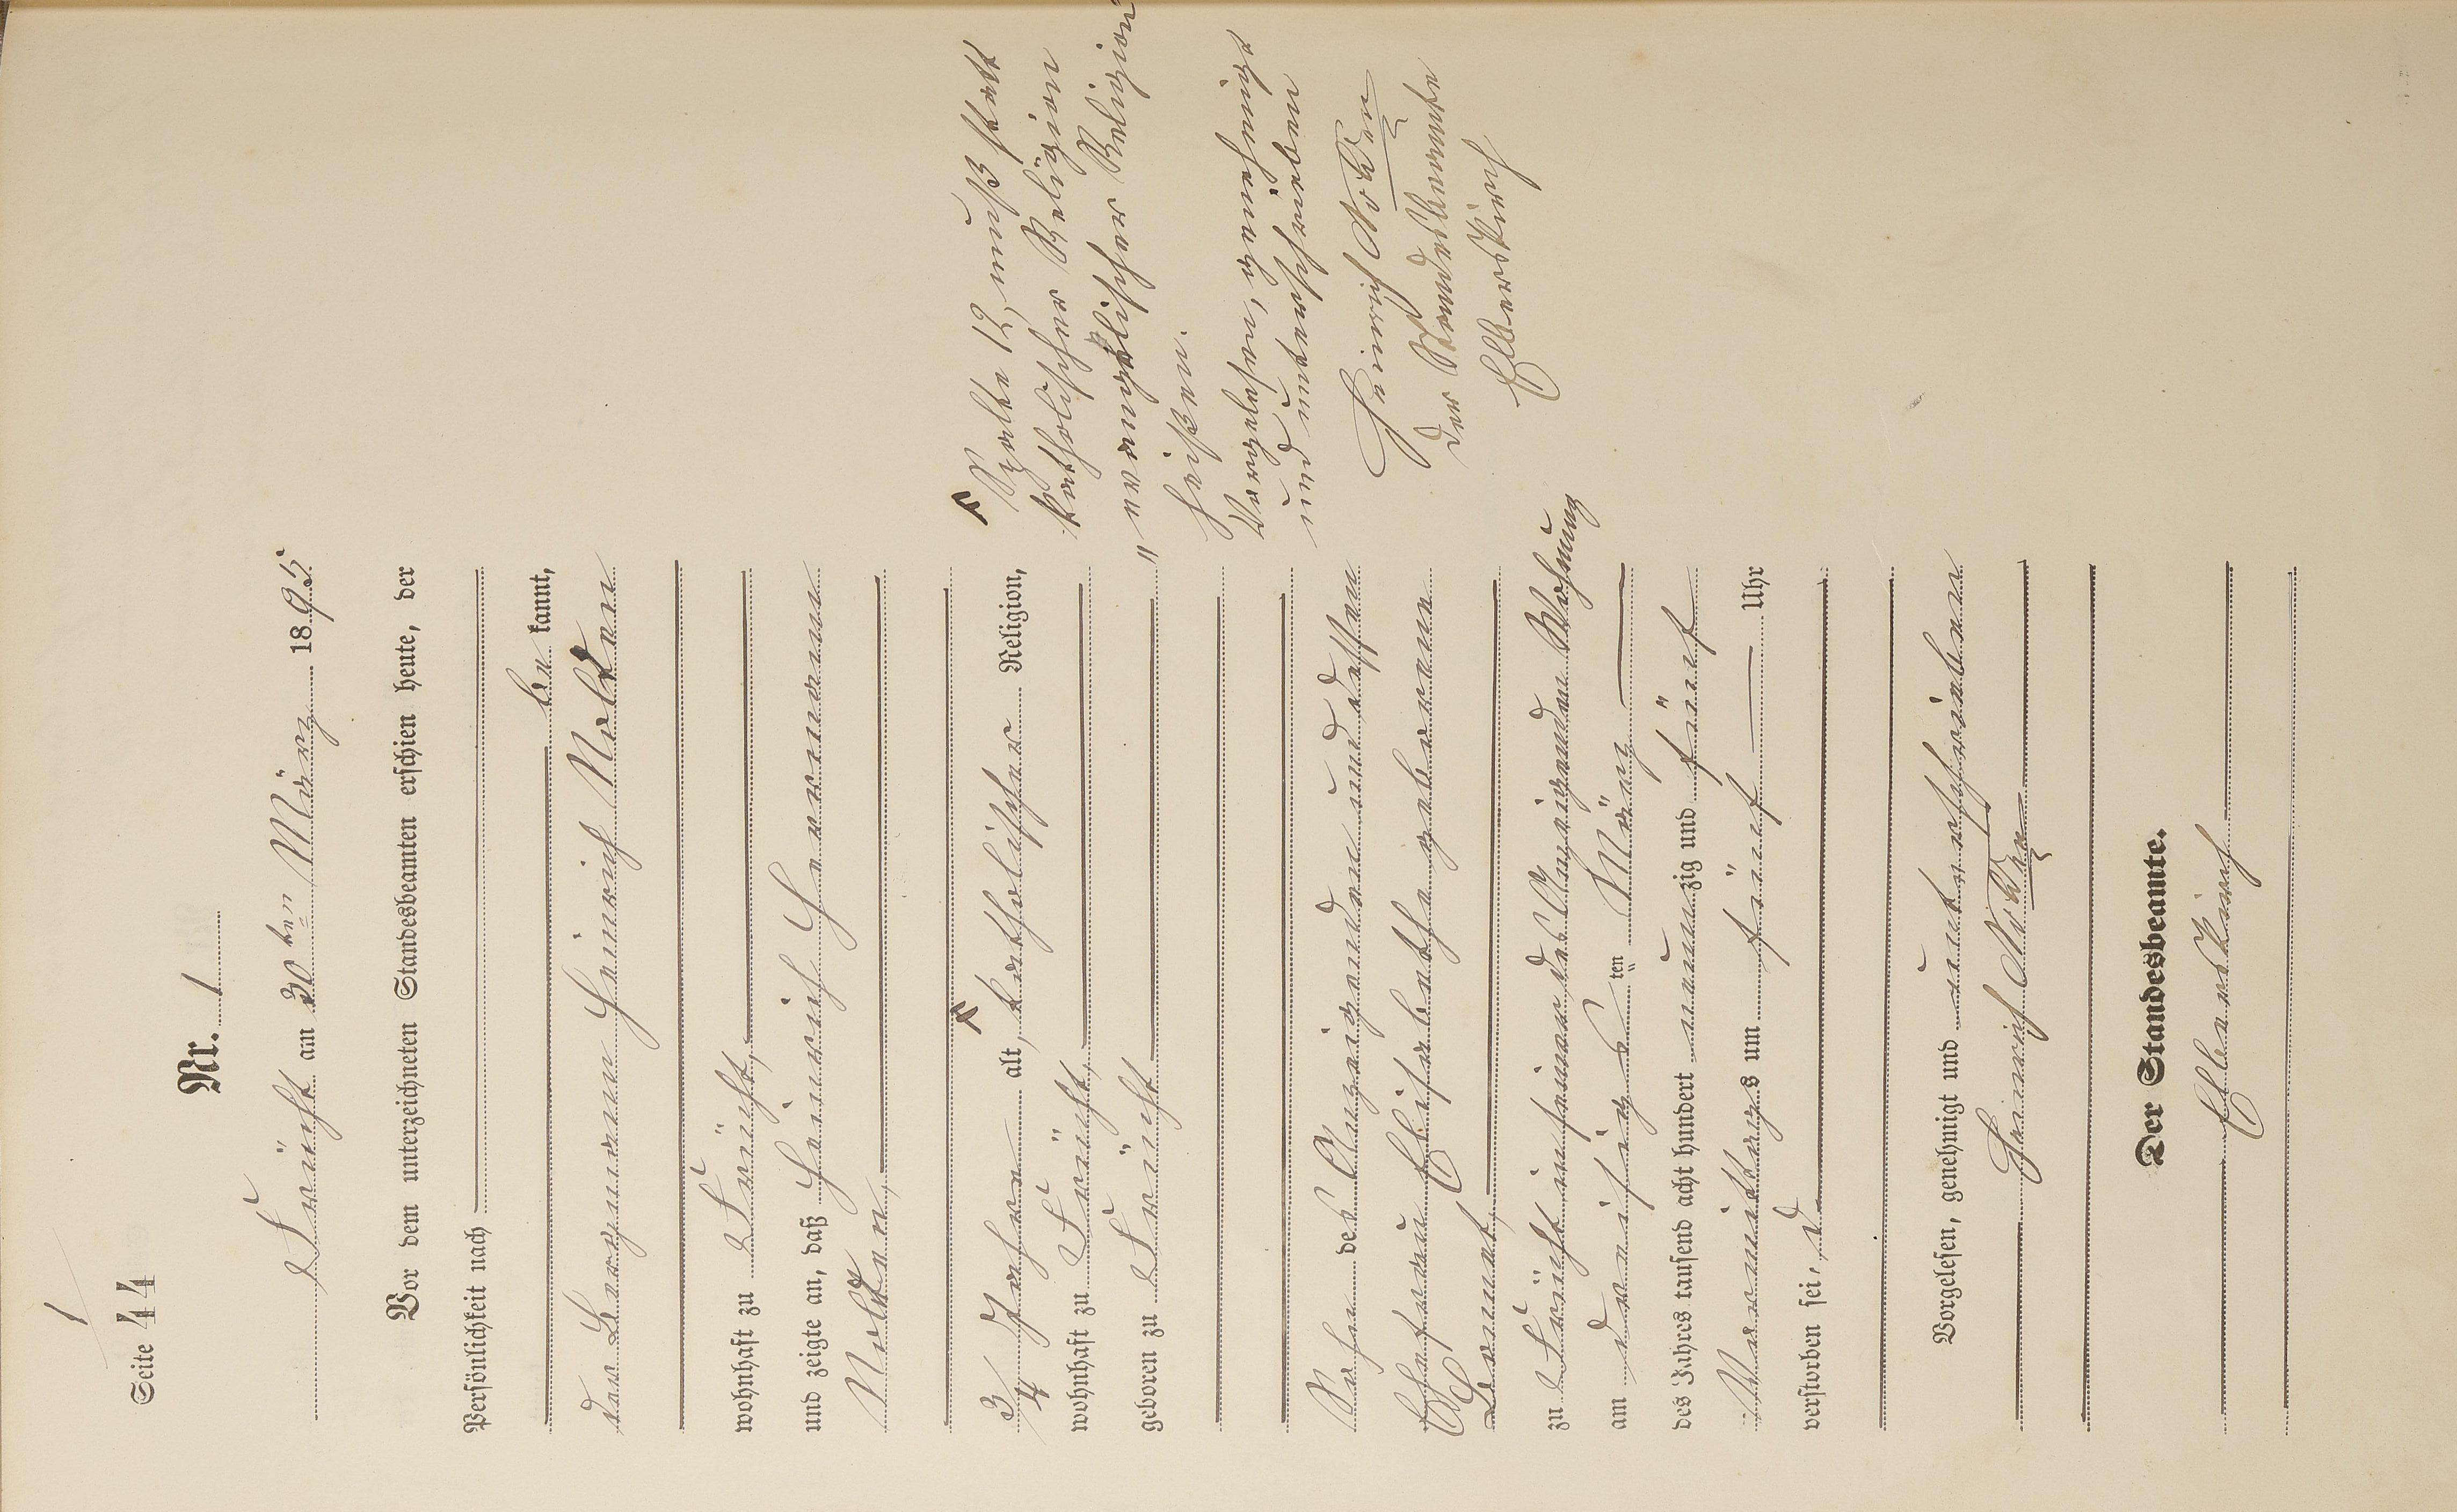 1
Seite 44
Nr. 1
Frücht am 30ten März 1895
Vor dem unterzeichneten Standesbeamten erschien heute, der
Persönlichkeit nach
be kannt,
der Bergmann Heinrich Nolten
wohnhaft zu Frücht,
und zeigte an, daß Heinrich Hermann
Nolten,
3/4 Jahre alt, katholischer Religion,
wohnhaft zu Frücht,
geboren zu Frücht
Sohn des Anzeigenden und dessen
Ehefrau Elisabethe geborene
zu Frücht in seiner des Anzeigenden Wohnung
am dreißigsten März
des Jahres tausend acht hundert neunzig und fünf
Vormittags um fünf Uhr
verstorben sei,
Vorgelesen, genehmigt und unterschrieben
Heinrich Nolten
Der Standesbeamte.
Elberskirch
Spalte 12, muß statt
katholischer Religion
"evangelischer Religion
heißen.
Vorgelesen, genehmigt
und unterschrieben
Heinrich Nolten
Der Standesbeamte
Elberskirch